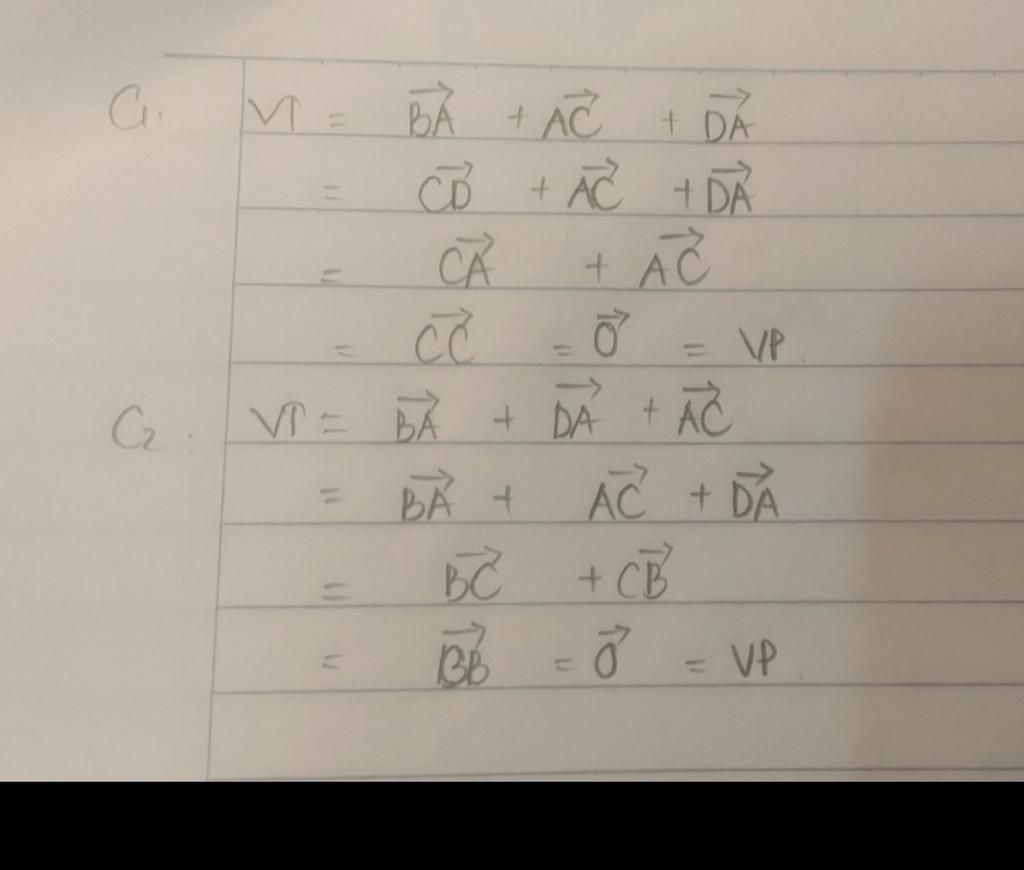 C1. VT = \overrightarrow{BA} + \overrightarrow{AC} + \overrightarrow{DA}
= \overrightarrow{CD} + \overrightarrow{AC} + \overrightarrow{DA}
= \overrightarrow{CA} + \overrightarrow{AC}
= \overrightarrow{CC} = \overrightarrow{0} = VP.
C2: VT = \overrightarrow{BA} + \overrightarrow{DA} + \overrightarrow{AC}
= \overrightarrow{BA} + \overrightarrow{AC} + \overrightarrow{DA}
= \overrightarrow{BC} + \overrightarrow{CB}
= \overrightarrow{BB} = \overrightarrow{0} = VP.